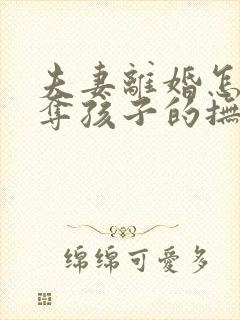 夫妻離婚怎
奪孩子的撫
绵绵可愛多